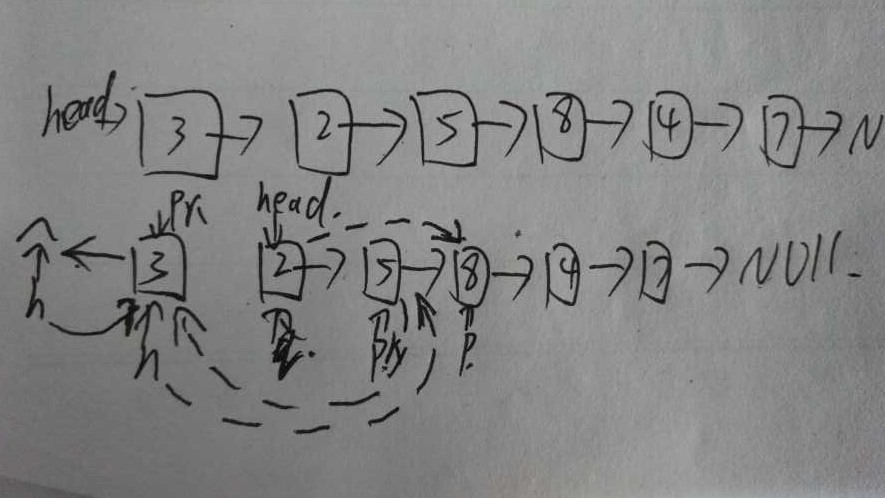 head→ 3 → 2 → 5 → 8 → 4 → 7 → N
pr head.
3 2 → 5 → 8 → 4 → 7 → NUll.
h q. pr p.
h